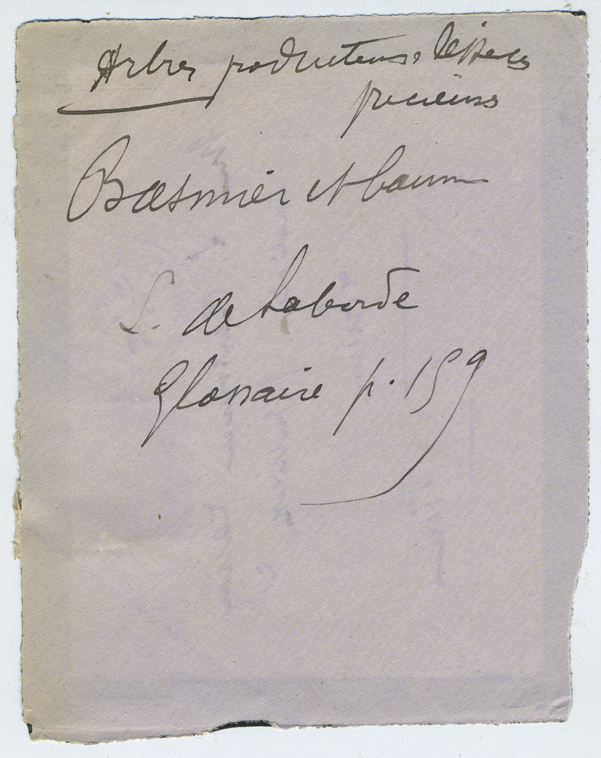 Arbres producteurs
précieux
Basmier et baume
L. de Laborde
Glossaire p. 159